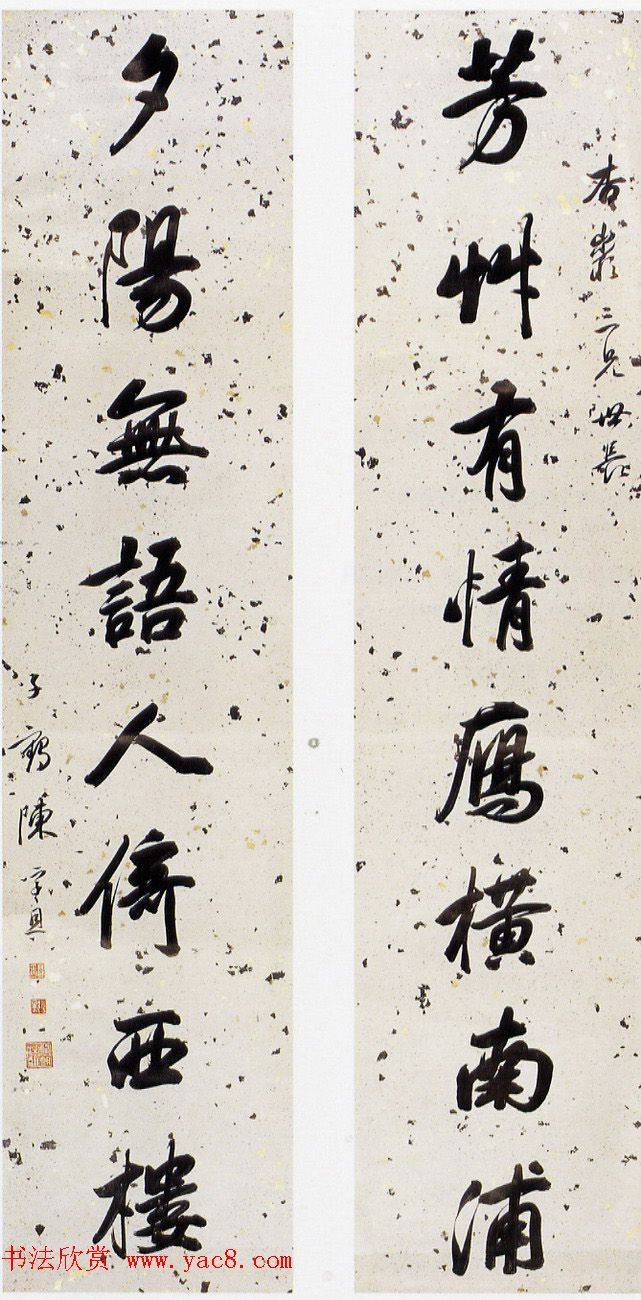 杏叢三兄世長
芳艸有情鴈橫南浦
夕陽無語人倚西樓
子鶴陳孚恩
书法欣赏 www.yac8.com